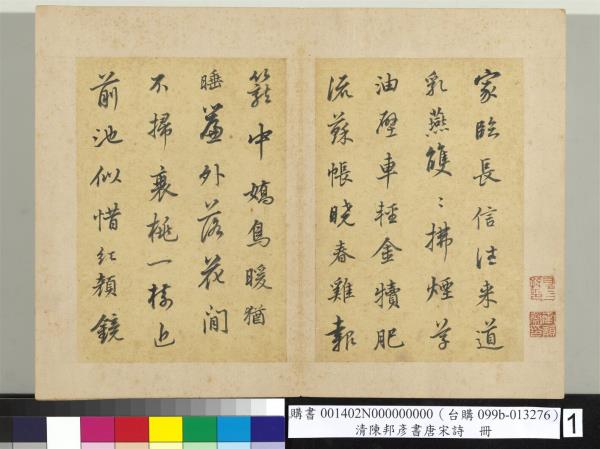 家臨長信往来道
乳燕雙〻拂煙草
油壁車輕金犢肥
流蘇帳曉春雞報
籠中嬌鳥暖猶
睡簾外落花閒
不掃衰桃一樹近
前池似惜紅顏鏡
購書 001402N000000000（台購 099b-013276）
清陳邦彥書唐宋詩　冊
1